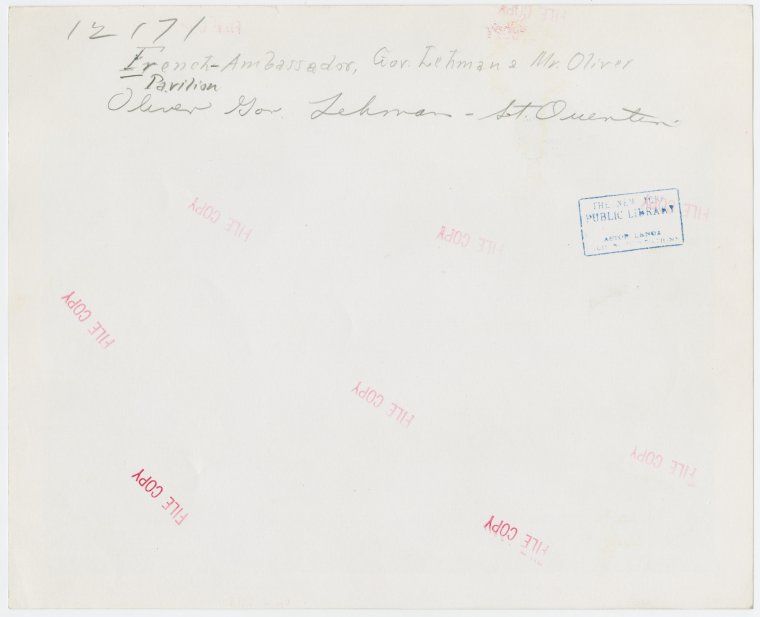 12171
French-Ambassador, Gov. Lehman & Mr. Oliver
Pavilion
Oliver Gov. Lehman - St. Quentin
FILE COPY
FILE COPY
THE NEW YORK
PUBLIC LIBRARY
ASTOR LENOX
FILE COPY
FILE COPY
FILE COPY
FILE COPY
FILE COPY
FILE COPY
FILE COPY
FILE COPY